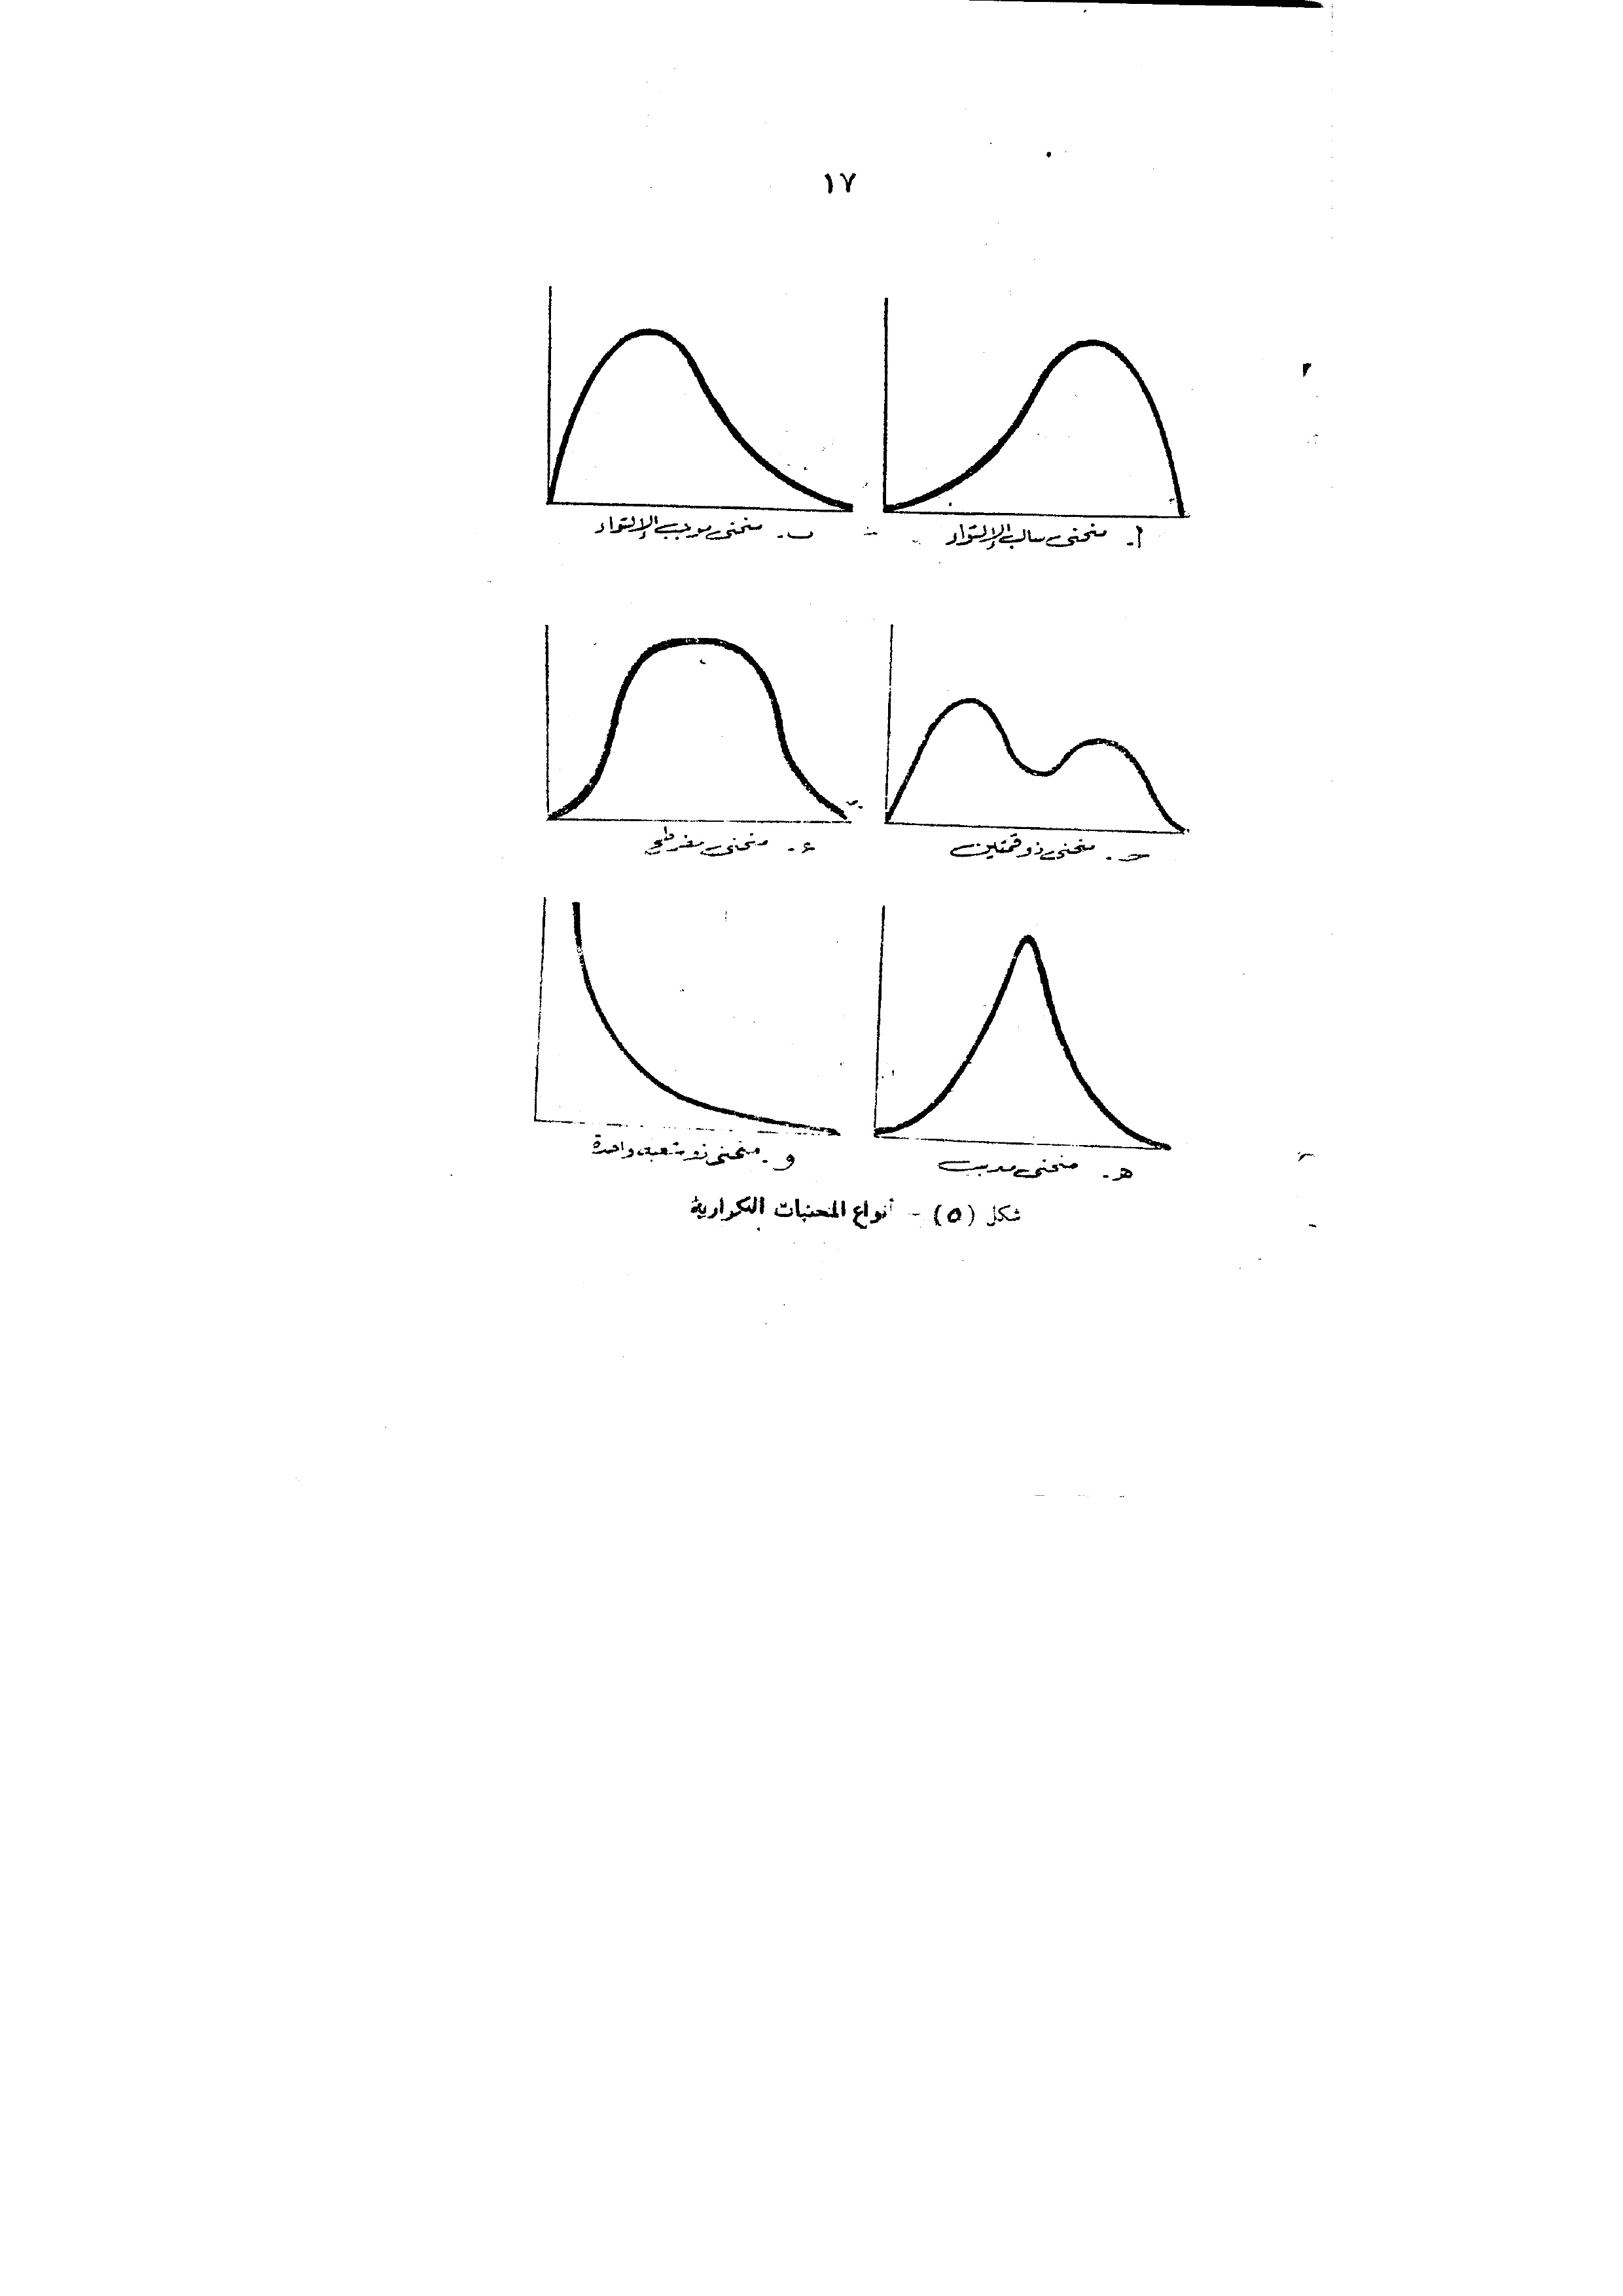 ١٧
أ. منحنى سالب الإلتواء
ب. منحنى موجب الإلتواء
حـ. منحنى ذو قمتين
ء. منحنى مفرطح
هـ. منحنى مدبب
و. منحنى ذو شعبة واحدة
شكل (٥) - أنواع المنحنيات التكرارية